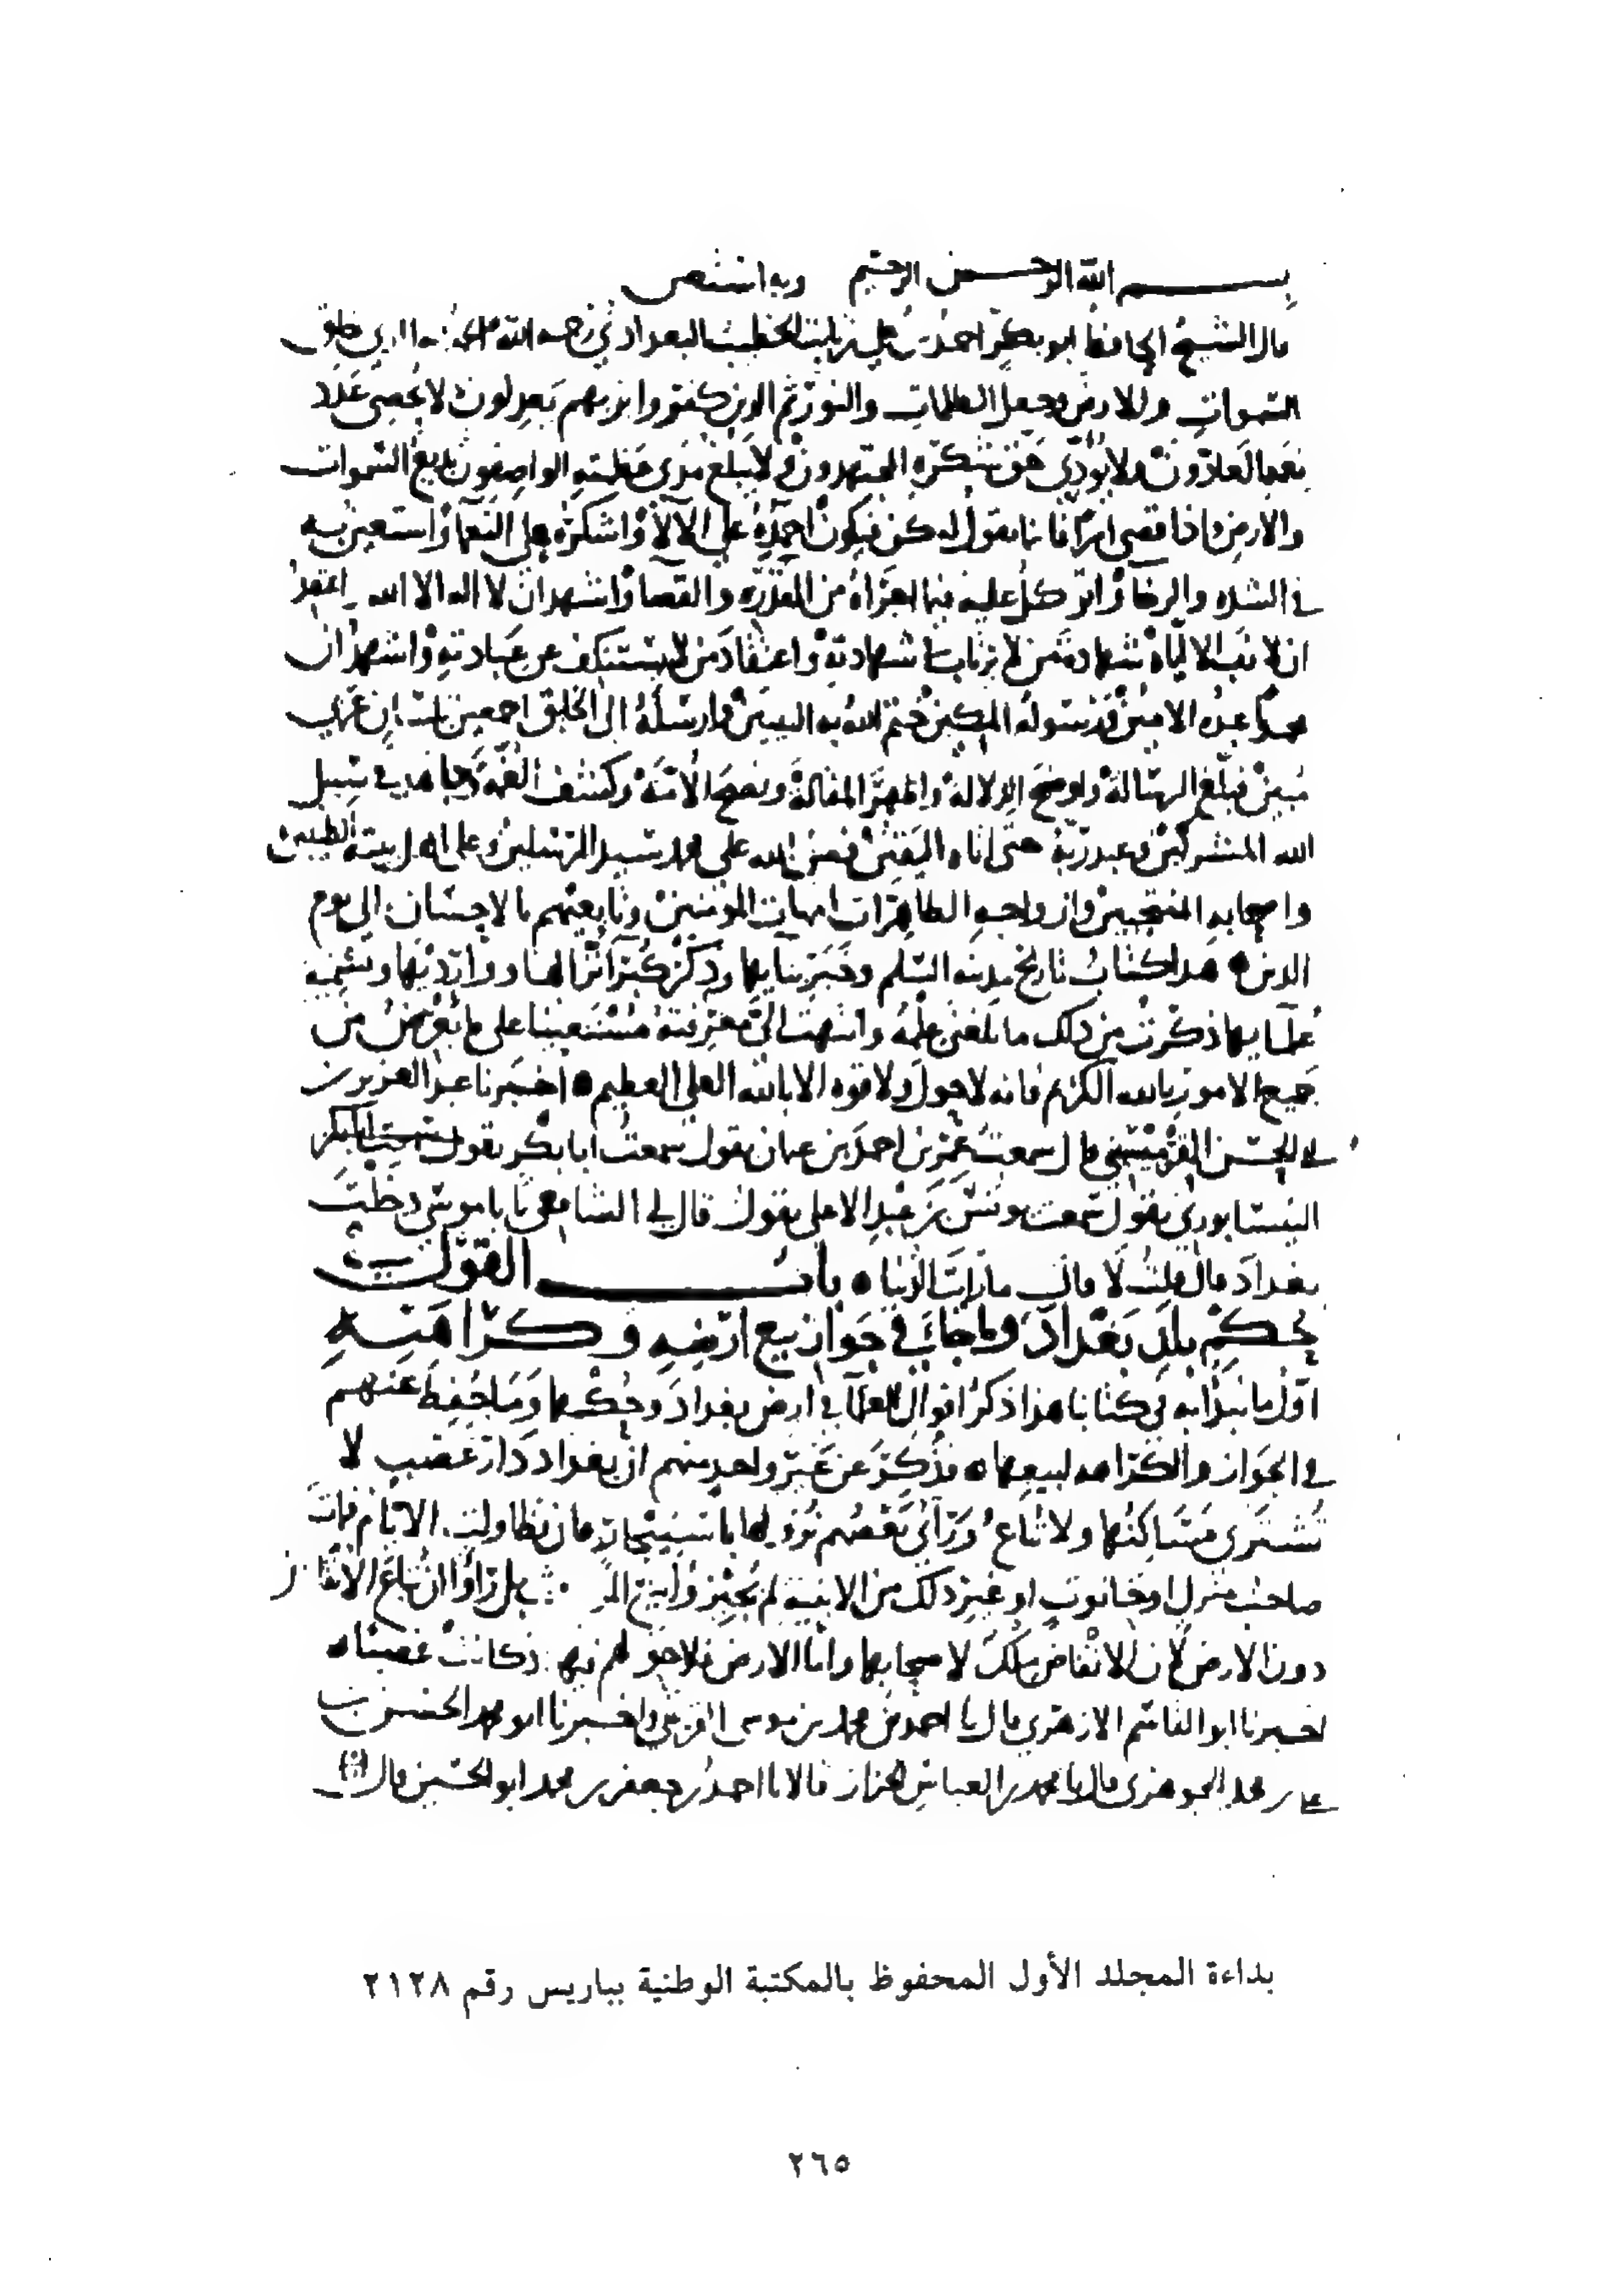 بسم الله الرحمن الرحيم وبه استعين
قال الشيخ الحافظ ابو بكر احمد بن علي بن ثابت الخطيب البغدادي رحمه الله الحمد لله الذي خلق
السموات والارض وجعل الظلمات والنور ثم الذين كفروا بربهم يعدلون لا يحصي عدد
نعمه العادون ولا يؤدي حق شكره المجتهدون ولا يبلغ مدى عظمته الواصفون بديع السموات
والارض واذا قضى امرا فانما يقول له كن فيكون احمده على الآلاء واشكره على النعماء واستعين به
في الشدة والرخاء واتوكل عليه فيما اجراه من القدر والقضاء واشهد ان لا اله الا الله واعتقد
ان لا رب الا اياه شهادة من لا يرتاب في شهادته واعتقاد من لا يستنكف عن عبادته واشهد ان
محمدا عبده الامين ورسوله المكين ختم الله به النبيين وارسله الى الخلق اجمعين بلسان عربي
مبين فبلغ الرسالة واوضح الدلالة واظهر المقالة ونصح الامة وكشف الغمة وجاهد في سبيل
الله المشركين وعبد ربه حتى اتاه اليقين فصلى الله على محمد سيد المرسلين وعلى اهل بيته الطيبين
واصحابه المنتجبين وازواجه الطاهرات امهات المؤمنين وتابعيهم بالاحسان الى يوم
الدين هذا كتاب تاريخ مدينة السلم وخبر بنايها وذكر كبراء نزالها وورديها وتسمية
علمايها ذكرت من ذلك ما بلغني علمه وانتهت الي معرفته مستعينا على ما يعرض من
جميع الامور بالله الكريم فانه لا حول ولا قوة الا بالله العلي العظيم اخبرنا عبد العزيز بن
ابي الحسن القرميسيني قال سمعت عمر بن احمد بن عثمان يقول سمعت ابا بكر
النيسابوري يقول سمعت يونس بن عبد الاعلى يقول قال لي الشافعي يا با موسى دخلت
بغداد قال قلت لا قال ما رايت الدنيا باب القول في
حكم بلد بغداد وما جاء في جواز بيع ارضه وكراهته
اول ما نبدا به في كتابنا هذا ذكر اقوال العلماء في ارض بغداد وحكمها وما حفظ عنهم
في الجواز والكراهة لبيعها فذكر عن غير واحد منهم ان بغداد دار غصب لا
تشترى مساكنها ولا تباع وراى بعضهم نزولها باستيجار فان تطاولت الايام فمات
صاحب منزل او حانوت او غير ذلك من الابنية لم يجيزوا بيع بل راوا ان تباع الانقاض
دون الارض لان الانقاض ملك لاصحابها واما الارض فلا حق لهم فيها اذ كانت غصبا
اخبرنا ابو القاسم الازهري قال نا احمد بن محمد بن موسى القرشي واخبرنا ابو محمد الحسن بن
علي بن محمد الجوهري قال نا محمد بن العباس الخزاز قالا نا احمد بن جعفر بن محمد ابو الحسين قال
بداءة المجلد الأول المحفوظ بالمكتبة الوطنية بباريس رقم ٢١٢٨
٢٦٥